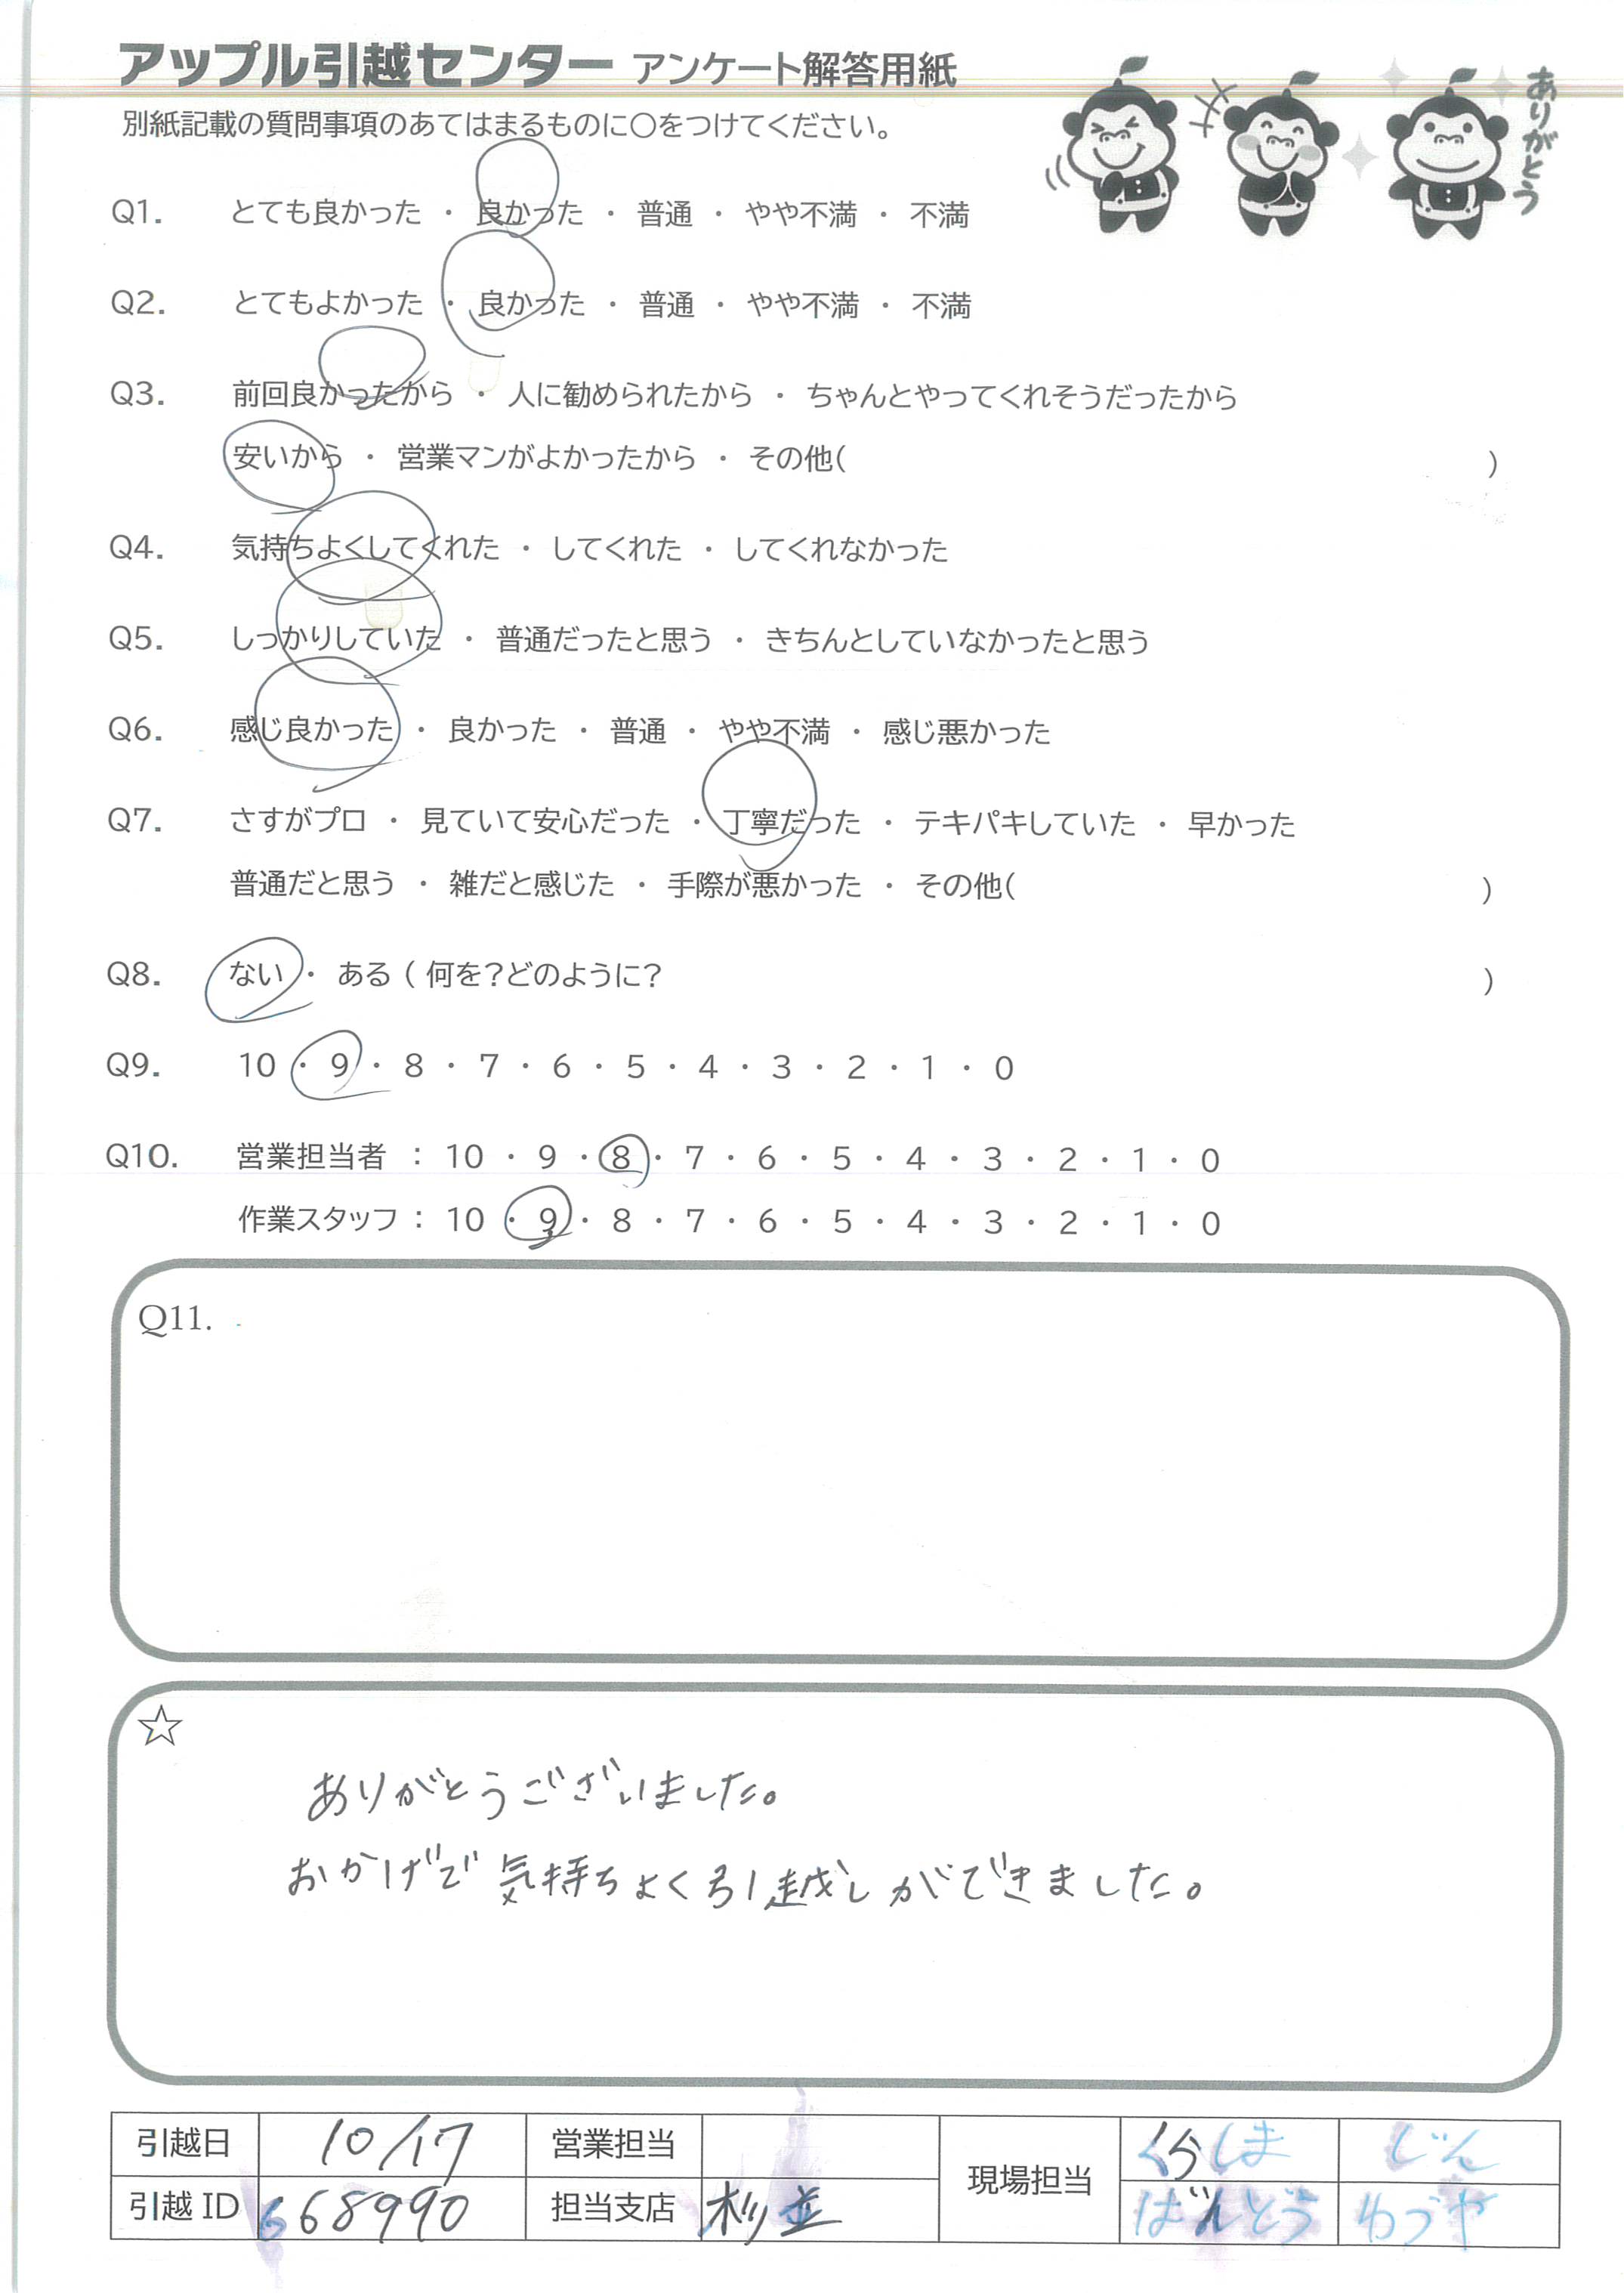 アップル引越センター アンケート解答用紙
別紙記載の質問事項のあてはまるものに○をつけてください。
ありがとう
Q1. とても良かった ・ 良かった ・ 普通 ・ やや不満 ・ 不満
Q2. とてもよかった ・ 良かった ・ 普通 ・ やや不満 ・ 不満
Q3. 前回良かったから ・ 人に勧められたから ・ ちゃんとやってくれそうだったから
安いから ・ 営業マンがよかったから ・ その他( )
Q4. 気持ちよくしてくれた ・ してくれた ・ してくれなかった
Q5. しっかりしていた ・ 普通だったと思う ・ きちんとしていなかったと思う
Q6. 感じ良かった ・ 良かった ・ 普通 ・ やや不満 ・ 感じ悪かった
Q7. さすがプロ ・ 見ていて安心だった ・ 丁寧だった ・ テキパキしていた ・ 早かった
普通だと思う ・ 雑だと感じた ・ 手際が悪かった ・ その他( )
Q8. ない ・ ある ( 何を?どのように? )
Q9. 10 ・ 9 ・ 8 ・ 7 ・ 6 ・ 5 ・ 4 ・ 3 ・ 2 ・ 1 ・ 0
Q10. 営業担当者 : 10 ・ 9 ・ 8 ・ 7 ・ 6 ・ 5 ・ 4 ・ 3 ・ 2 ・ 1 ・ 0
作業スタッフ : 10 ・ 9 ・ 8 ・ 7 ・ 6 ・ 5 ・ 4 ・ 3 ・ 2 ・ 1 ・ 0
Q11.
☆
ありがとうございました。
おかげで気持ちよく引越しができました。
引越日 10/17 営業担当 現場担当 くらしま じん
引越 ID 668990 担当支店 杉並 ばんどう わづや